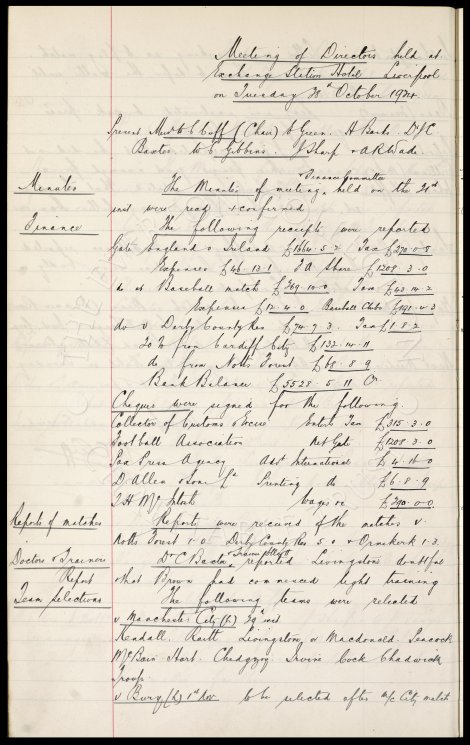 Meeting of Directors held at
Exchange Station Hotel Liverpool
on Tuesday 28th October 1924
Present Messrs W C Cuff (Chair) W Green. A Banks. Dr J C
Baxter. W E Gibbins. J Sharp & A R Wade.
Minutes
& Finance Committee
The Minutes of meeting held on the 21st
inst were read & confirmed
Finance
The following receipts were reported
Gate England v Ireland £1564.5.7 Tax £270.0.8
Expenses £46.13.1 F A Share £1208.3.0
do at Baseball match £369.10.0 Tax £43.14.2
Expenses £12.4.0 Baseball Clubs £191.4.3
do v Derby County Res £74.9.3. Tax £1.8.2
from Cardiff City £132.14.11
do from Notts Forest £68.8.9
Bank Balance £5528.5.11
Cheques were signed for the following
Collector of Customs & Excise Ents Tax £315.3.0
Football Association Net Gate £1208.3.0
Press Agency Advt International £4.16.0
D. Allen & Sons Ld Printing do £6.8.9
T H McIntosh Wages &c £390.0.0
Reports of matches
Reports were received of the matches v.
Notts Forest 1.0. Derby County Res 5.0 & Ormskirk 1.3.
Doctors & Trainers
Report
Dr C Baxter reported Livingstone doubtful
& that Brown had commenced light training
Team Selections
The following teams were selected
v Manchester City (h) 29th inst
Kendall. Raitt Livingstone or Macdonald. Peacock
McBain. Hart. Chedgzoy. Irvine Cock Chadwick
Troup.
v Bury (h) 1st Nov to be selected after M/c City match